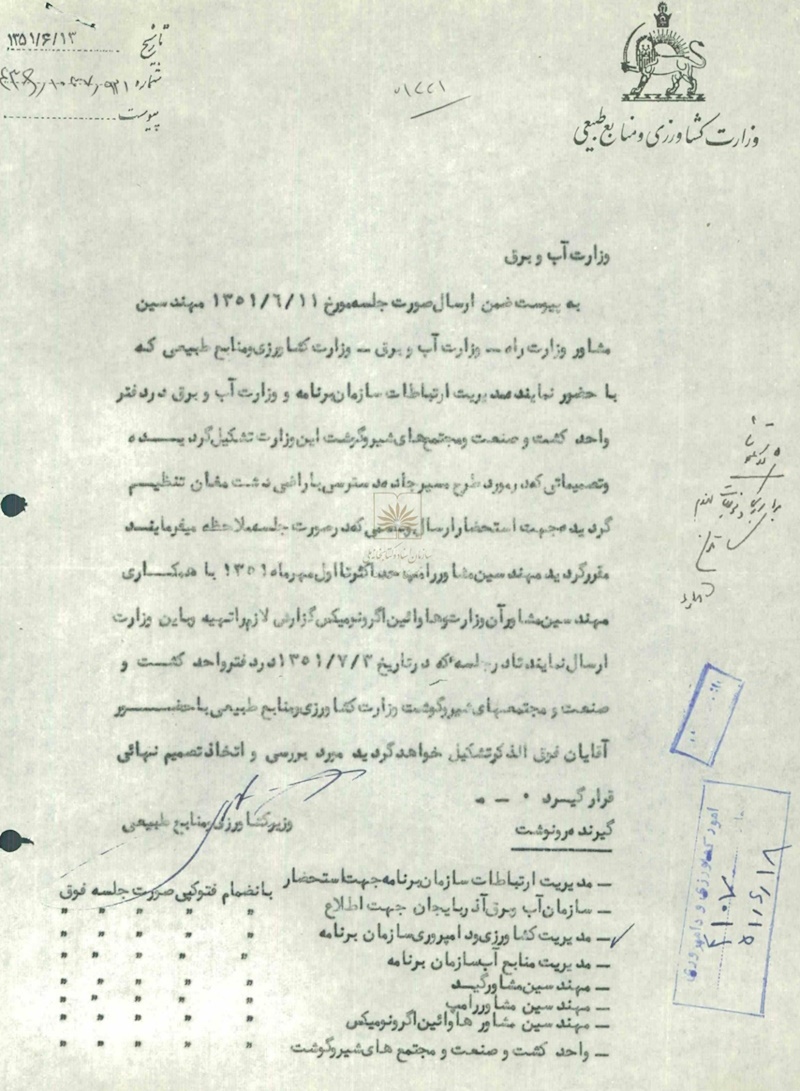 تاریخ ۱۳۵۱/۶/۱۳
شماره
پیوست
وزارت کشاورزی و منابع طبیعی
وزارت آب و برق
به پیوست ضمن ارسال صورت جلسه مورخ ۱۳۵۱/۶/۱۱ مهندسین
مشاور وزارت راه ــ وزارت آب و برق ــ وزارت کشاورزی و منابع طبیعی که
با حضور نماینده مدیریت ارتباطات سازمان برنامه و وزارت آب و برق در دفتر
واحد کشت و صنعت و مجتمع های شیر و گوشت این وزارت تشکیل گردیده
و تصمیماتی که در مورد طرح مسیر جاده دسترسی باراضی دشت مغان تنظیم
گردیده جهت استحضار ارسال که در صورت جلسه ملاحظه میفرمایند
مقرر گردید مهندسین مشاور رامپ حداکثر تا اول مهرماه ۱۳۵۱ با همکاری
مهندسین مشاور آن وزارت و هاوائین اگرونومیکس گزارش لازم را تهیه و باین وزارت
ارسال نمایند تا در جلسه ای که در تاریخ ۱۳۵۱/۷/۳ در دفتر واحد کشت و
صنعت و مجتمعهای شیر و گوشت وزارت کشاورزی و منابع طبیعی با حضور
آقایان فوق الذکر تشکیل خواهد گردید مورد بررسی و اتخاذ تصمیم نهائی
قرار گیرد ۰ ــ ــ
وزیر کشاورزی و منابع طبیعی
گیرنده رونوشت
ــ مدیریت ارتباطات سازمان برنامه جهت استحضار بانضمام فتوکپی صورت جلسه فوق
ــ سازمان آب و برق آذربایجان جهت اطلاع " " " " "
ــ مدیریت کشاورزی و دامپروری سازمان برنامه " " " " "
ــ مدیریت منابع آب سازمان برنامه " " " " "
ــ مهندسین مشاور گیبد " " " " "
ــ مهندسین مشاور رامپ " " " " "
ــ مهندسین مشاور هاوائین اگرونومیکس " " " " "
ــ واحد کشت و صنعت و مجتمع های شیر و گوشت " " " " "
امور کشاورزی و دامپروری
سازمان اسناد و کتابخانه ملی